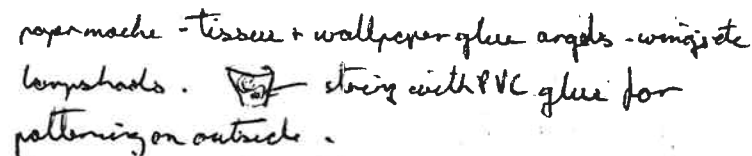 papermache - tissue + wallpaper glue angels - wings etc
lampshads. string with PVC glue for
patterning on outside.